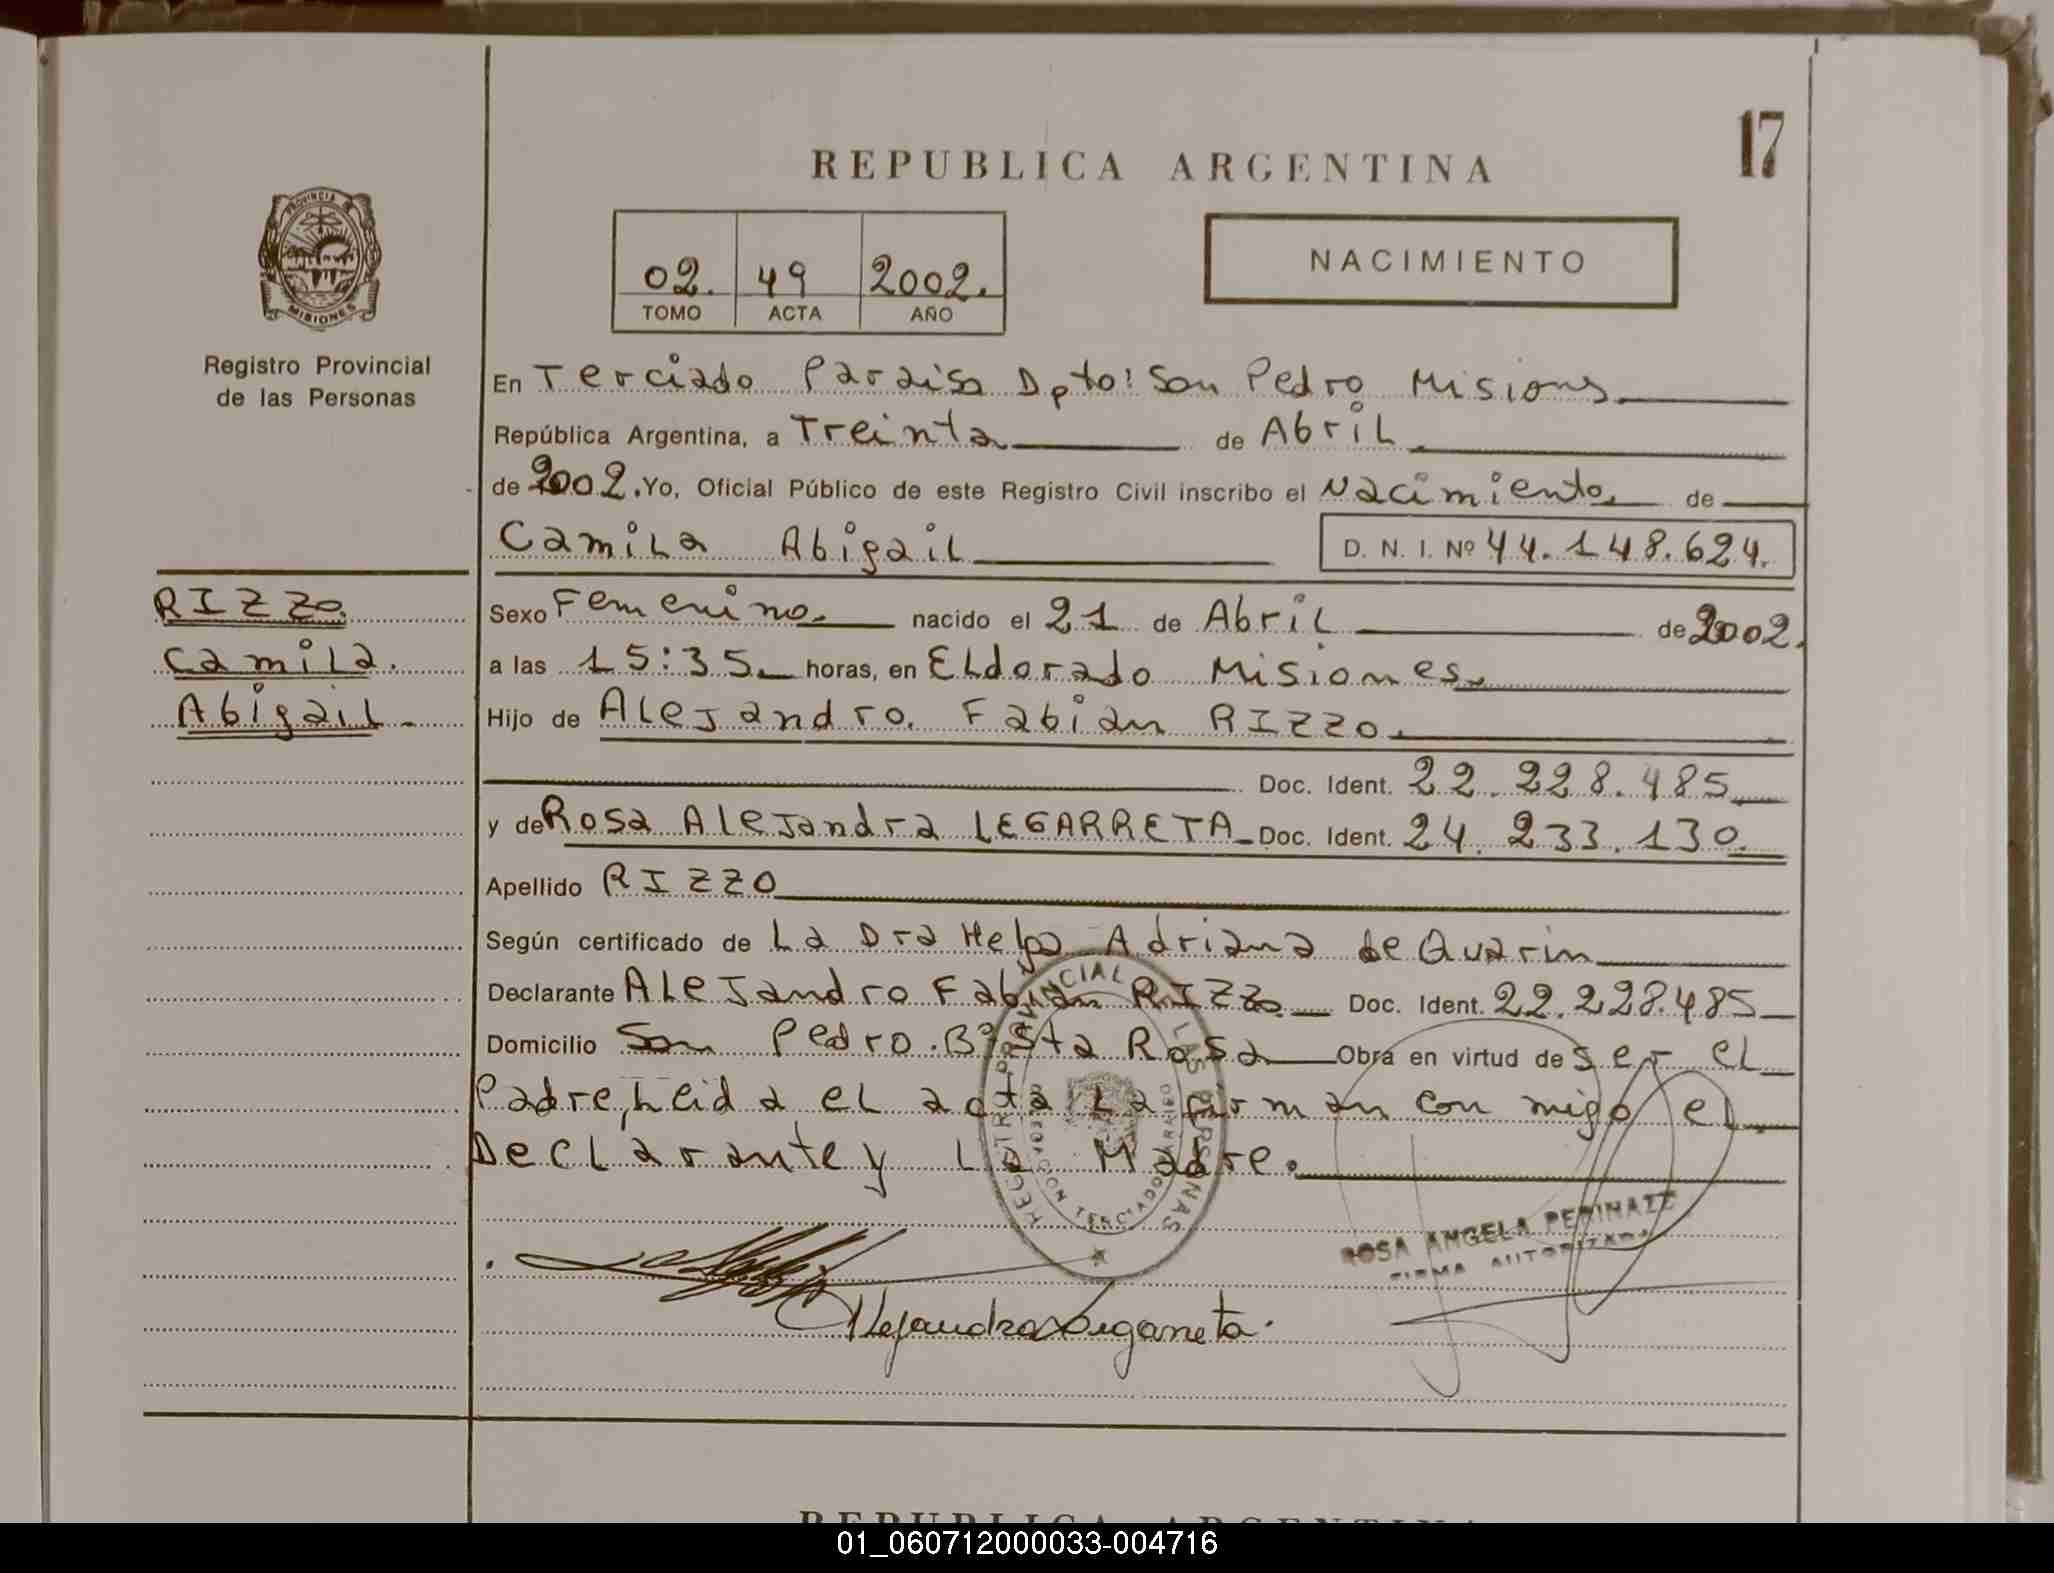 17
REPUBLICA ARGENTINA
PROVINCIA DE
MISIONES
02. 49 2002.
TOMO ACTA AÑO
NACIMIENTO
Registro Provincial
de las Personas
En Terciado Paraiso Dpto: San Pedro Misiones
República Argentina, a Treinta de Abril
de 2002. Yo, Oficial Público de este Registro Civil inscribo el Nacimiento de
Camila Abigail D. N. I. Nº 44.148.624.
RIZZO.
Camila.
Abigail.
Sexo Femenino. nacido el 21 de Abril de 2002.
a las 15:35 horas, en Eldorado Misiones.
Hijo de Alejandro Fabian RIZZO.
Doc. Ident. 22.228.485
y de Rosa Alejandra LEGARRETA Doc. Ident. 24.233.130.
Apellido RIZZO
Según certificado de La Dra Helga Adriana de Quarin
Declarante Alejandro Fabian RIZZO. Doc. Ident. 22.228.485
Domicilio San Pedro. Bº Sta Rosa Obra en virtud de ser el
Padre, Leida el acta La firman con migo el
Declarante y La Madre.
REGISTRO PROVINCIAL LAS PERSONAS
TERCIADO PARAISO
ROSA ANGELA
FIRMA AUTORIZADA
Alejandra Legarreta.
REPUBLICA ARGENTINA
01_060712000033-004716